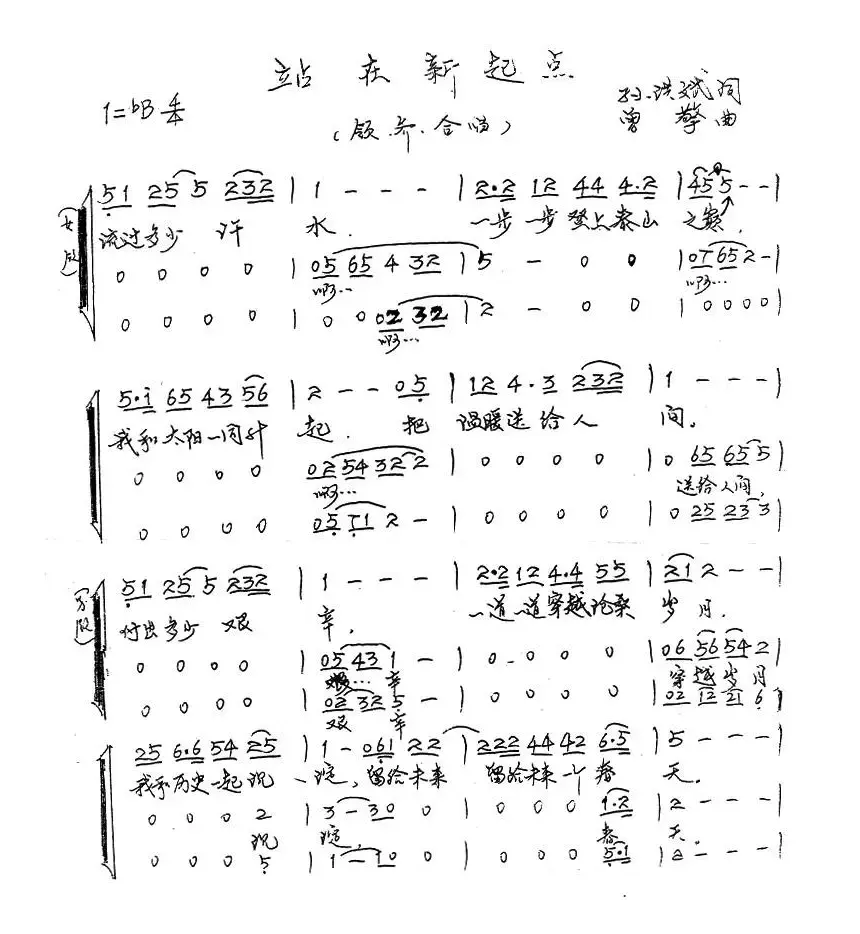 站在新起点
1=bB 4/4
(领.齐.合唱)
孙洪斌词
曾擎曲
(女领)
51 25 5 232 | 1 - - - | 2·2 12 44 4·2 | 45 5 - - |
流过多少 汗 水. 一步一步登上泰山 之巅.
0 0 0 0 | 05 65 4 32 | 5 - 0 0 | 05 65 2 - |
啊... 啊...
0 0 0 0 | 0 0 02 32 | 2 - 0 0 | 0 0 0 0 |
啊...
5·i 65 43 56 | 2 - - 05 | 12 4·3 232 | 1 - - - |
我和太阳一同升 起. 把 温暖送给人 间.
0 0 0 0 | 02 54 32 2 | 0 0 0 0 | 0 65 65 5 |
啊... 送给人间,
0 0 0 0 | 05 71 2 - | 0 0 0 0 | 0 25 23 3 |
(男领)
51 25 5 232 | 1 - - - | 2·2 12 4·4 55 | 21 2 - - |
付出多少 艰 辛, 一道一道穿越沧桑 岁月.
0 0 0 0 | 05 43 1 - | 0 0 0 0 | 06 56 54 2 |
艰... 辛 穿越岁月
0 0 0 0 | 02 32 5 - | 0 0 0 0 | 02 12 21 6 |
艰 辛
25 6·6 54 25 | 1 - 061 22 | 222 44 42 6·5 | 5 - - - |
我和历史一起沉 淀, 留给未来 留给未来一个春 天.
0 0 0 2 | 3 - 3 0 0 | 0 0 0 1·2 | 2 - - - |
沉 淀, 春 天.
0 0 0 5 | 1 - 1 0 0 | 0 0 0 5·1 | 2 - - - |